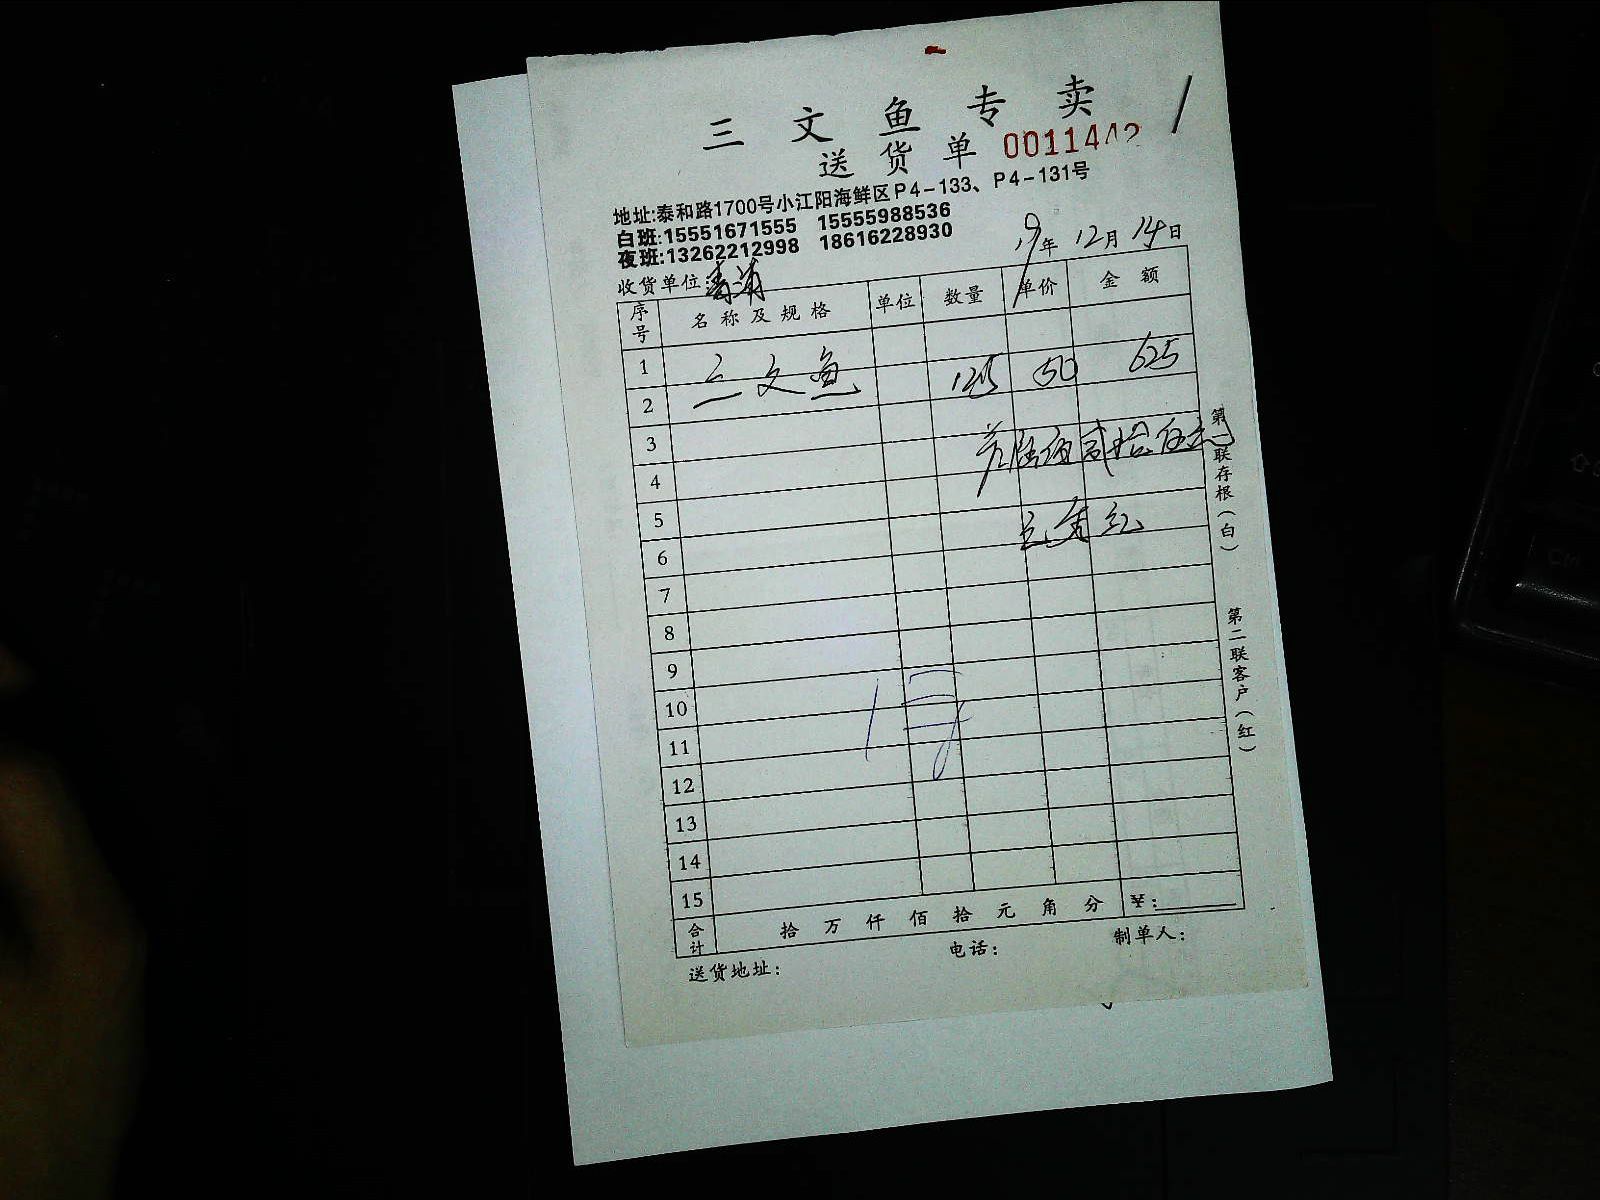 三文鱼专卖
送货单 0011442
地址:泰和路1700号小江阳海鲜区P4-133、P4-131号
白班:15551671555 15555988536
夜班:13262212998 18616228930
19年12月14日
收货单位:青浦
序号 名称及规格 单位 数量 单价 金额
1 三文鱼 125 50 625
2
3
共陆佰贰拾伍元
4
5
6
7
8
9
10
1号
11
12
13
14
15
合计 拾万仟佰拾元角分 ¥:
送货地址: 电话: 制单人:
第一联存根(白)
第二联客户(红)